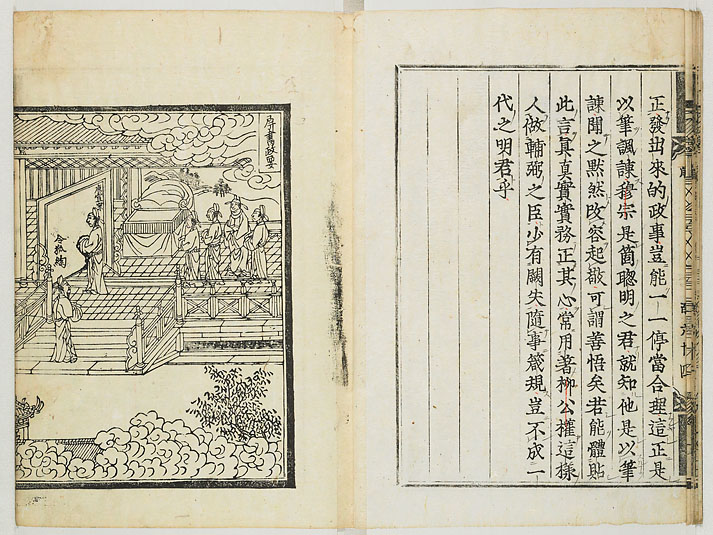 正發出來的政事豈能一一停當合理這正是
以筆諷諫穆宗是箇聰明之君就知他是以筆
諫聞之黙然改容起敬可謂善悟矣若能體貼
此言真真實實務正其心常用著柳公權這樣
人做輔弼之臣少有闕失隨事箴規豈不成一
代之明君乎
屏書政要
令狐綯